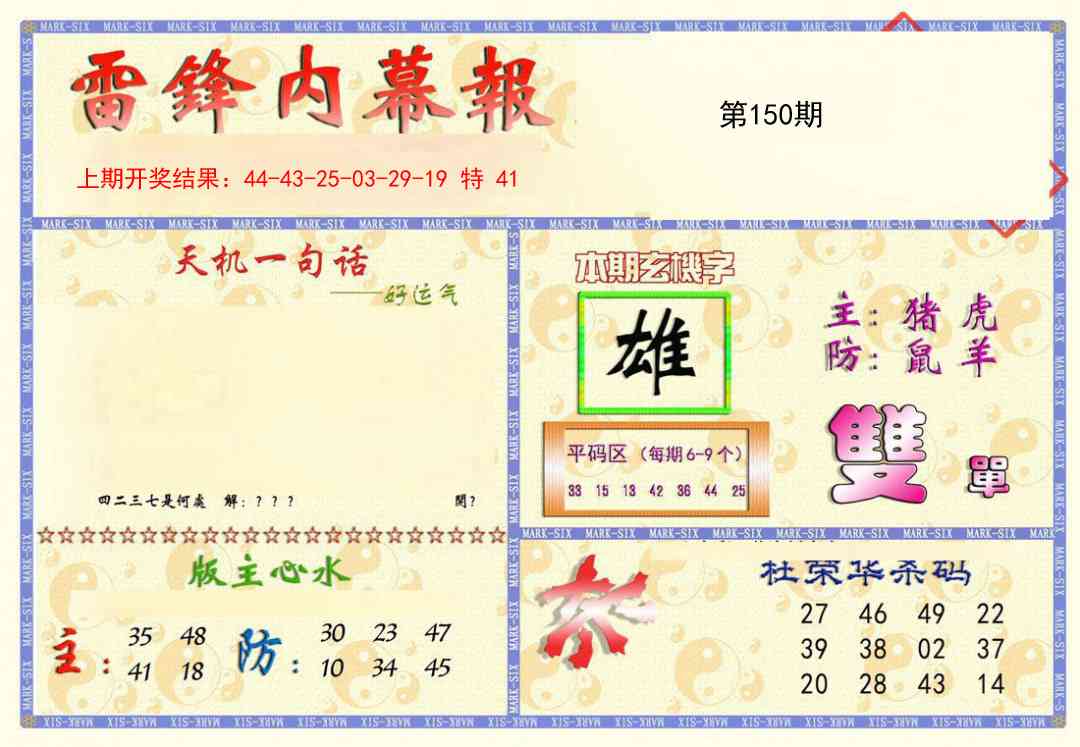 雷鋒内幕報
第150期
上期开奖结果：44-43-25-03-29-19 特 41
天机一句话
——好运气
四二三七是何處 解：？？？ 開？
本期玄機字
雄
主：猪 虎
防：鼠 羊
平码区（每期6-9个）
33 15 13 42 36 44 25
雙 單
版主心水
主： 35 48 防： 30 23 47
41 18 10 34 45
杀 杜荣华杀码
27 46 49 22
39 38 02 37
20 28 43 14
MARK-SIX